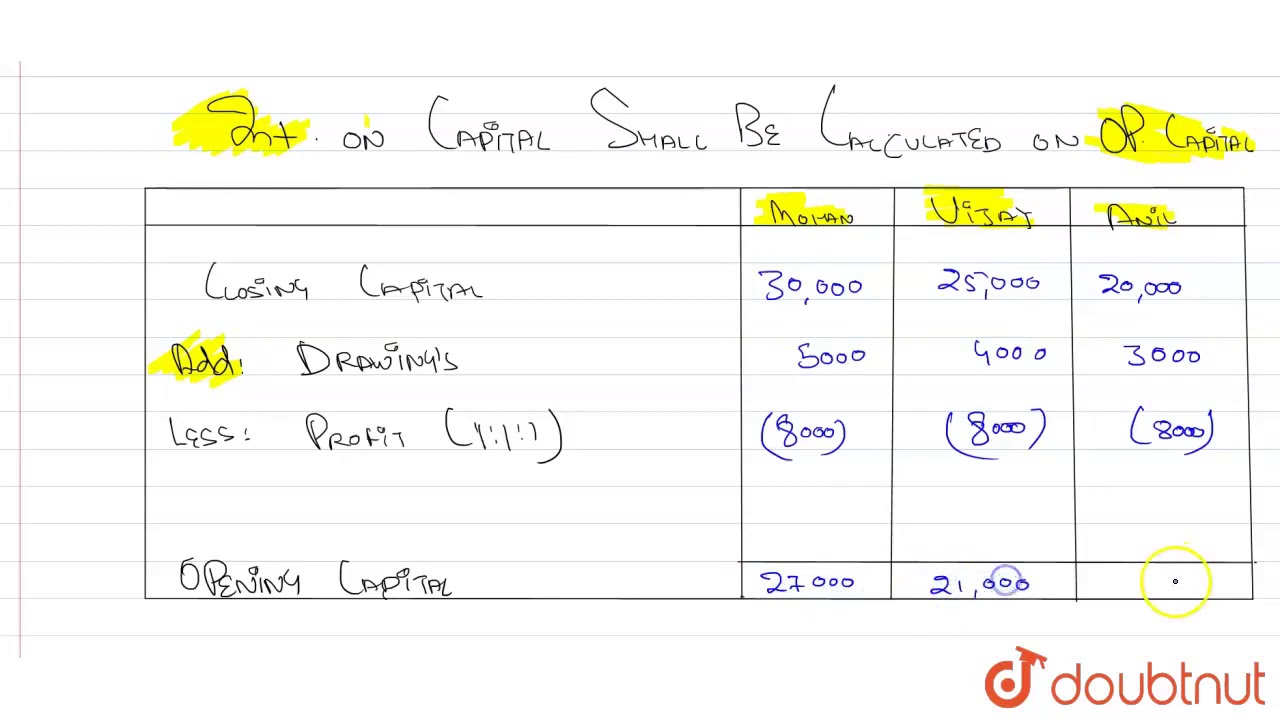 Int. on Capital Shall Be Calculated on Op. Capital
Mohan Vijay Anil
Closing Capital 30,000 25,000 20,000
Add: Drawing's 5000 4000 3000
Less: Profit (1:1:1) (8000) (8000) (8000)
Opening Capital 27000 21,000
doubtnut